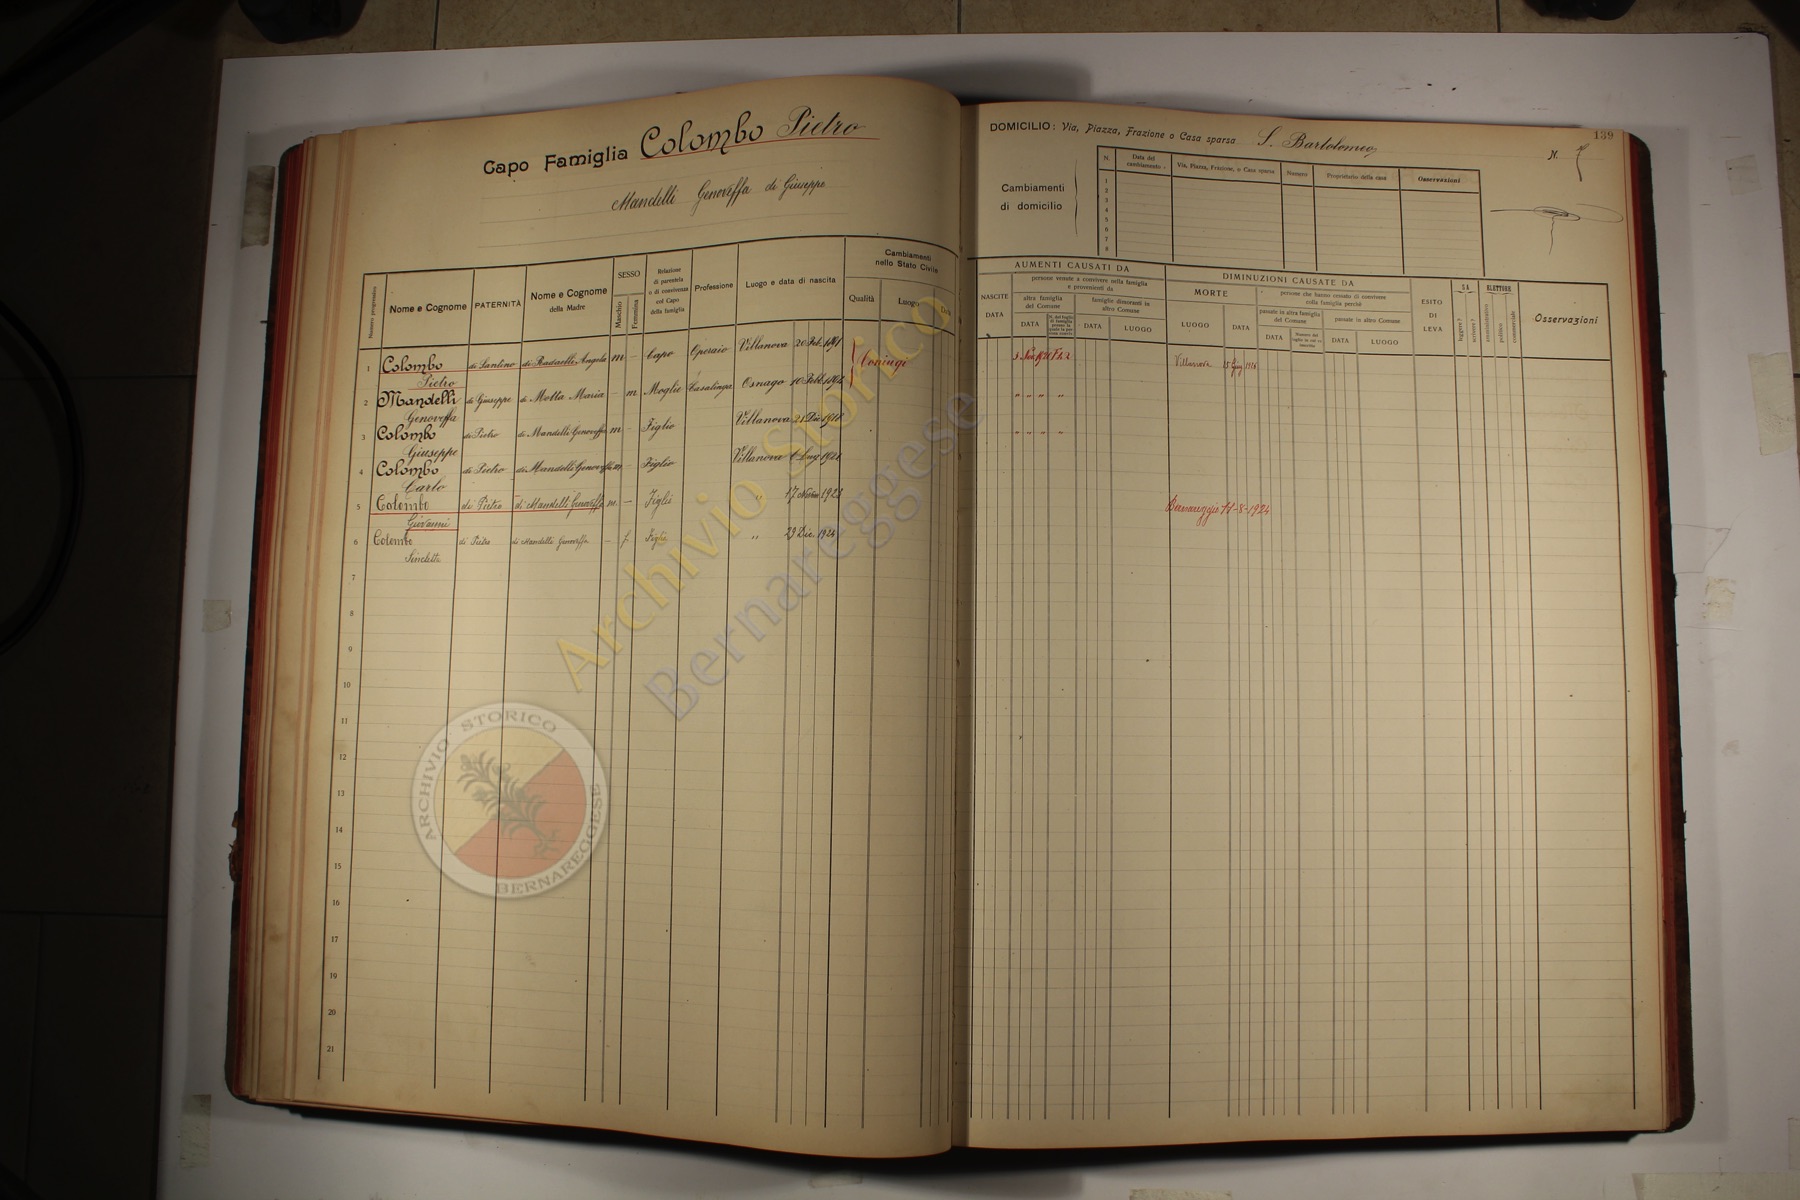 Capo Famiglia Colombo Pietro
Mandelli Genoveffa di Giuseppe
Numero progressivo
Nome e Cognome
PATERNITÀ
Nome e Cognome della Madre
SESSO
Maschio
Femmina
Relazione di parentela o di convivenza col Capo della famiglia
Professione
Luogo e data di nascita
Cambiamenti nello Stato Civile
Qualità
Luogo
Data
1 Colombo Pietro di Santino di Radaelli Angela m – Capo Operaio Villanova 20 Feb. 1891 Coniugi
2 Mandelli Genoveffa di Giuseppe di Motta Maria – m Moglie Casalinga Osnago 10 Febb. 1892
3 Colombo Giuseppe di Pietro di Mandelli Genoveffa m – Figlio Villanova 21 Dic.
4 Colombo Carlo di Pietro di Mandelli Genoveffa m – Figlio Villanova 6 Lug. 1921
5 Colombo Giovanni di Pietro di Mandelli Genoveffa m – Figlio " 17 1923
6 Colombo di Pietro di Mandelli Genoveffa – f. Figlia " 29 Dic. 1924
7
8
9
10
11
12
13
14
15
16
17
19
20
21
DOMICILIO: Via, Piazza, Frazione o Casa sparsa S. Bartolomeo N. 7
139
Cambiamenti di domicilio
N.
Data del cambiamento
Via, Piazza, Frazione, o Casa sparsa
Numero
Proprietario della casa
Osservazioni
1
2
3
4
5
6
7
8
AUMENTI CAUSATI DA
NASCITE
DATA
persone venute a convivere nella famiglia e provenienti da
altra famiglia del Comune
DATA
famiglie dimoranti in altro Comune
DATA
LUOGO
DIMINUZIONI CAUSATE DA
MORTE
LUOGO
DATA
persone che hanno cessato di convivere colla famiglia perchè
passate in altra famiglia del Comune
DATA
passate in altro Comune
DATA
LUOGO
ESITO DI LEVA
SA
leggere?
scrivere?
ELETTORE
amministrativo
politico
commerciale
Osservazioni
Villanova
" " " "
" " " "
Bernareggio 11-8-1924
Archivio Storico
Bernareggese
ARCHIVIO STORICO
BERNAREGGESE